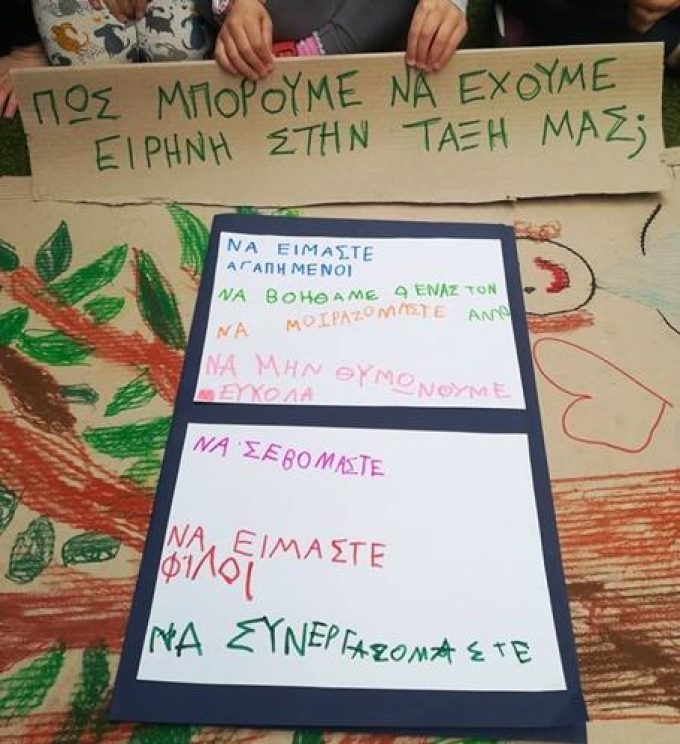 ΠΩΣ ΜΠΟΡΟΥΜΕ ΝΑ ΕΧΟΥΜΕ
ΕΙΡΗΝΗ ΣΤΗΝ ΤΑΞΗ ΜΑΣ;
ΝΑ ΕΙΜΑΣΤΕ
ΑΓΑΠΗΜΕΝΟΙ
ΝΑ ΒΟΗΘΑΜΕ Ο ΕΝΑΣ ΤΟΝ
ΑΛΛΟ
ΝΑ ΜΟΙΡΑΖΟΜΑΣΤΕ
ΝΑ ΜΗΝ ΘΥΜΩΝΟΥΜΕ
ΕΥΚΟΛΑ
ΝΑ ΣΕΒΟΜΑΣΤΕ
ΝΑ ΕΙΜΑΣΤΕ
ΦΙΛΟΙ
ΝΑ ΣΥΝΕΡΓΑΖΟΜΑΣΤΕ